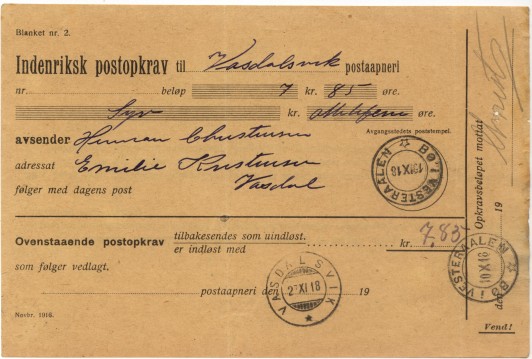 Blanket nr. 2.
Indenriksk postopkrav til Vasdalsvik postaapneri
nr beløp 7 kr. 85 øre.
Syv kr. øre.
avsender Herman Christensen
Avgangsstedets poststempel.
adressat Emilie Kristensen
Vasdal
følger med dagens post
BØ I VESTERAALEN
10 X 18
Ovenstaaende postopkrav tilbakesendes som uindløst.
er indløst med kr. 7,85
som følger vedlagt.
postaapneri den 19
VASDALSVIK
2 XI 18
Novbr. 1916.
Opkravsbeløpet mottat
den 19
BØ I VESTERAALEN
10 X 18
Vend!